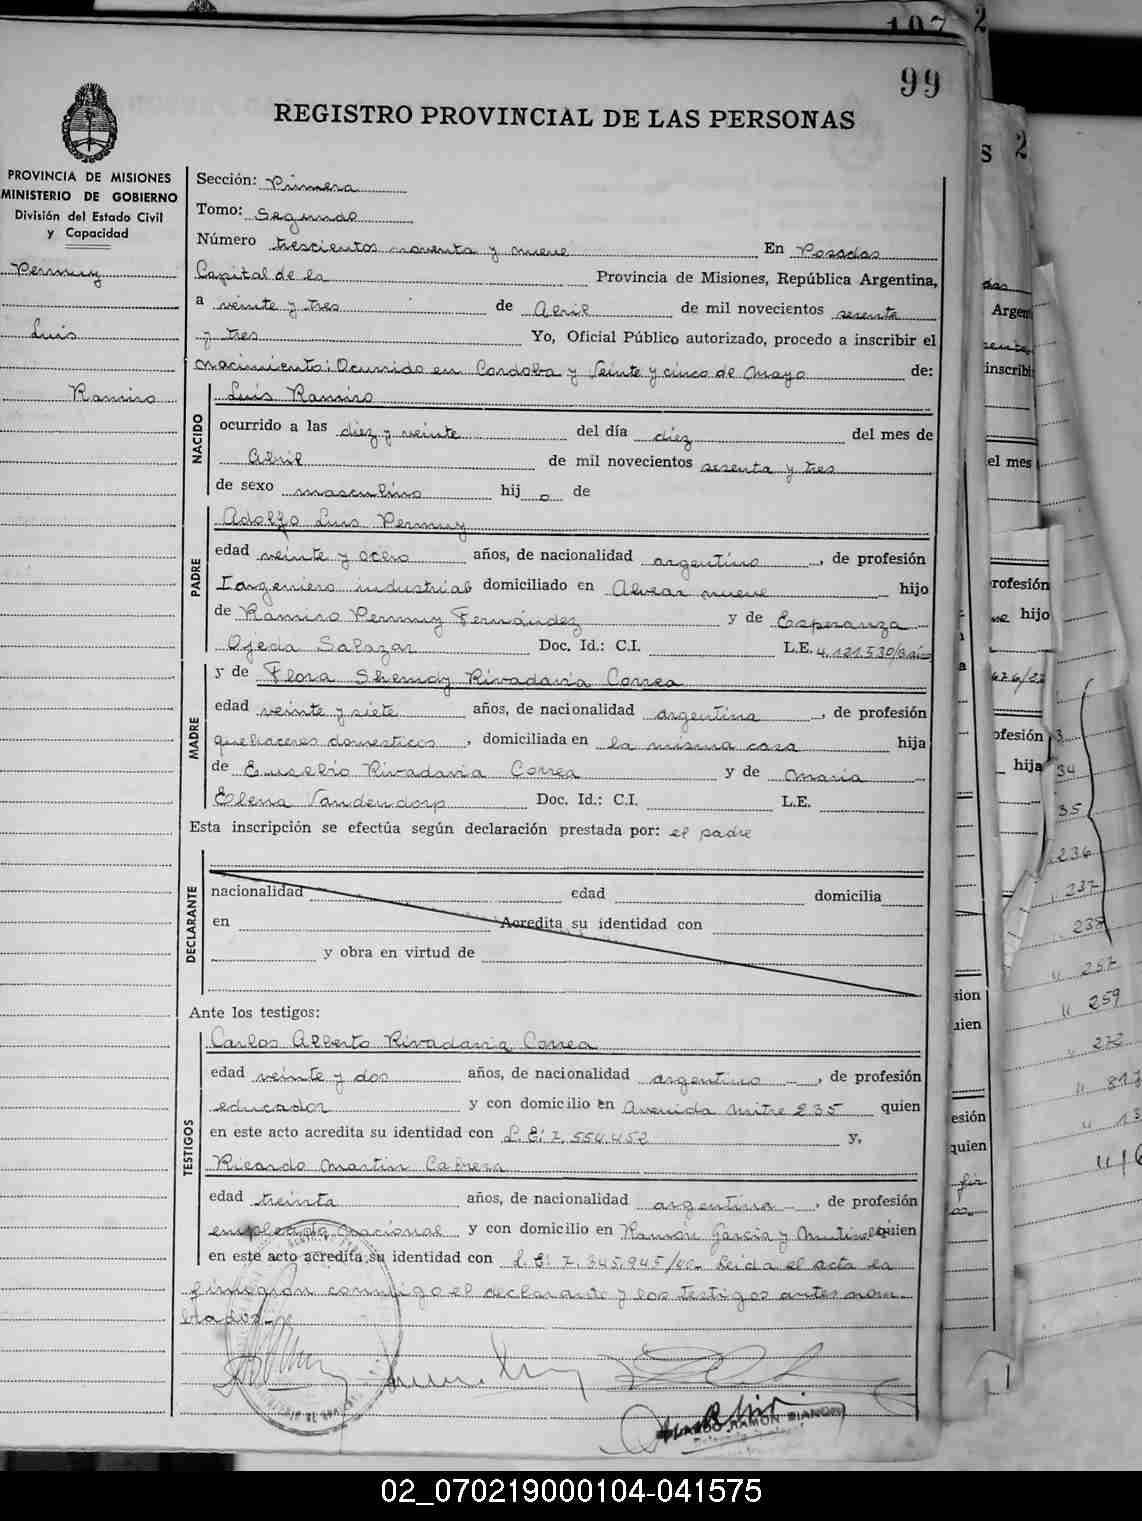 107 2
99
REGISTRO PROVINCIAL DE LAS PERSONAS
PROVINCIA DE MISIONES
MINISTERIO DE GOBIERNO
División del Estado Civil
y Capacidad
Permuy
Luis
Ramiro
Sección: Primera
Tomo: Segundo
Número trescientos noventa y nueve En Posadas
Capital de la Provincia de Misiones, República Argentina,
a veinte y tres de Abril de mil novecientos sesenta
y tres Yo, Oficial Público autorizado, procedo a inscribir el
nacimiento: Ocurrido en Cordoba y Veinte y cinco de Mayo de:
NACIDO
Luis Ramiro
ocurrido a las diez y veinte del día diez del mes de
Abril de mil novecientos sesenta y tres
de sexo masculino hij o de
PADRE
Adolfo Luis Permuy
edad veinte y ocho años, de nacionalidad argentino, de profesión
Ingeniero industrial domiciliado en Alvear nueve hijo
de Ramiro Permuy Fernández y de Esperanza
Ojeda Salazar Doc. Id.: C.I. L.E. 4.121.530
MADRE
y de Flora Shendy Rivadavia Correa
edad veinte y siete años, de nacionalidad argentina, de profesión
quehaceres domesticos, domiciliada en la misma casa hija
de Eusebio Rivadavia Correa y de Maria
Elena Vandendorp Doc. Id.: C.I. L.E.
Esta inscripción se efectúa según declaración prestada por: el padre
DECLARANTE
nacionalidad edad domicilia
en Acredita su identidad con
y obra en virtud de
Ante los testigos:
TESTIGOS
Carlos Alberto Rivadavia Correa
edad veinte y dos años, de nacionalidad argentino, de profesión
educador y con domicilio en Avenida Mitre 235 quien
en este acto acredita su identidad con L.E: 7.554.452 y,
Ricardo Martin Cabrera
edad treinta años, de nacionalidad argentina, de profesión
empleado nacional y con domicilio en Ramón Garcia y quien
en este acto acredita su identidad con L.E: 7.345.945 Leida el acta la
firmaron conmigo el declarante y los testigos antes nom-
brados.-
RAMON BIANCHI
S 2
Argen
inscribi
el mes
rofesión
hijo
ofesión
hija
34
35
236
237
238
257
259
272
sion
uien
esión
quien
02_070219000104-041575